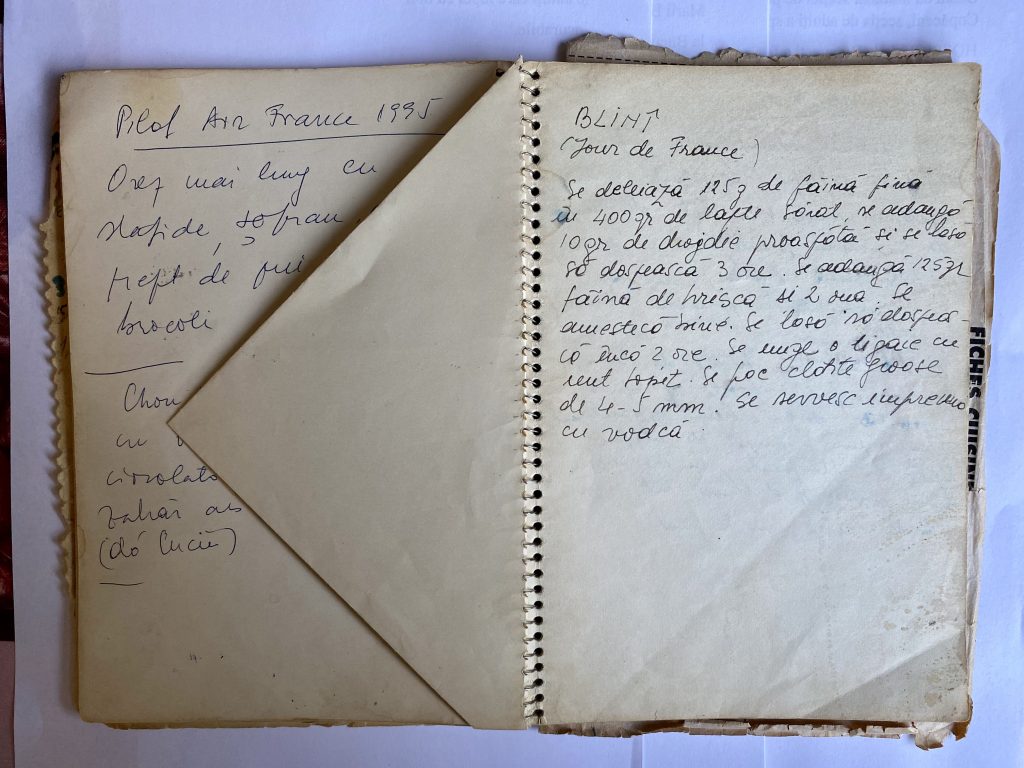 Pilaf Air France 1995
Orez mai lung cu
stafide, șofran
piept de pui
brocoli
Chou
cu
ciocolată
zahăr ars
(dă luciu)
BLINI
(Jour de France)
Se deleiază 125g de făină fină
în 400gr de lapte sărat, se adaugă
10gr de drojdie proaspătă si se lasă
să dospească 3 ore. Se adaugă 125gr
făină de hrișcă si 2 ouă. Se
amestecă bine. Se lasă să dospeas-
că încă 2 ore. Se unge o tigaie cu
unt topit. Se fac clătite groase
de 4-5 mm. Se servesc împreună
cu vodcă.
FICHES CUISINE